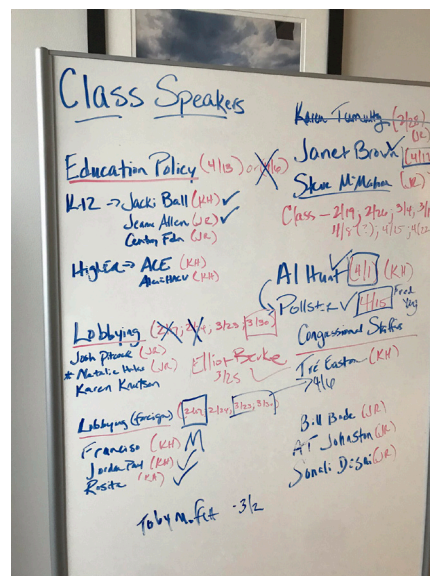 Class Speakers
Education Policy (4/13) or
K-12 → Jacki Ball (KH) ✓
Jeanne Allen (JR) ✓
(JR)
Higher → ACE (KH)
(KH)
Lobbying 3/23, 3/30)
Josh (JR)
* Natalie (JR)
Karen Knutsen
Elliot Berke
3/25
Lobbying (Foreign) 3/23,
Francisco (KH) M
Jordan Paul (KH) ✓
Rosita (KH) ✓
Toby Moffett - 3/2
Karen Tumulty (2/25)
(JR)
Janet Brown ✓ (4/1
Steve McMahon (JR)
Class - 2/19, 2/26, 3/4,
(?), 4/15, 4/22
Al Hunt ✓ 4/1 (KH)
Pollster ✓ 4/15 Fred
Yang
Congressional Staffers
Tré Easton (KH)
→ 4/6
Bill Bode (JR)
AT Johnston (JR)
Sonali Desai (JR)